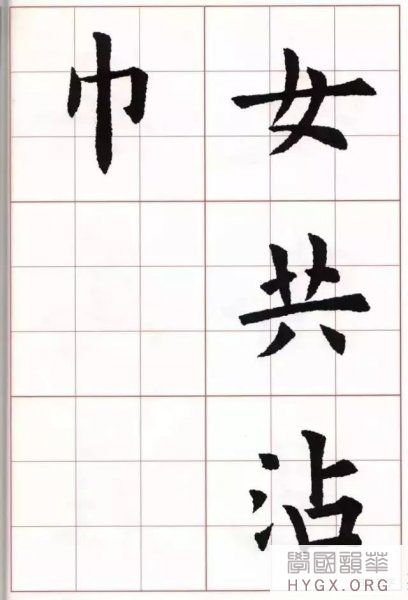 女共沾
巾
華韻國學
HYGX.ORG